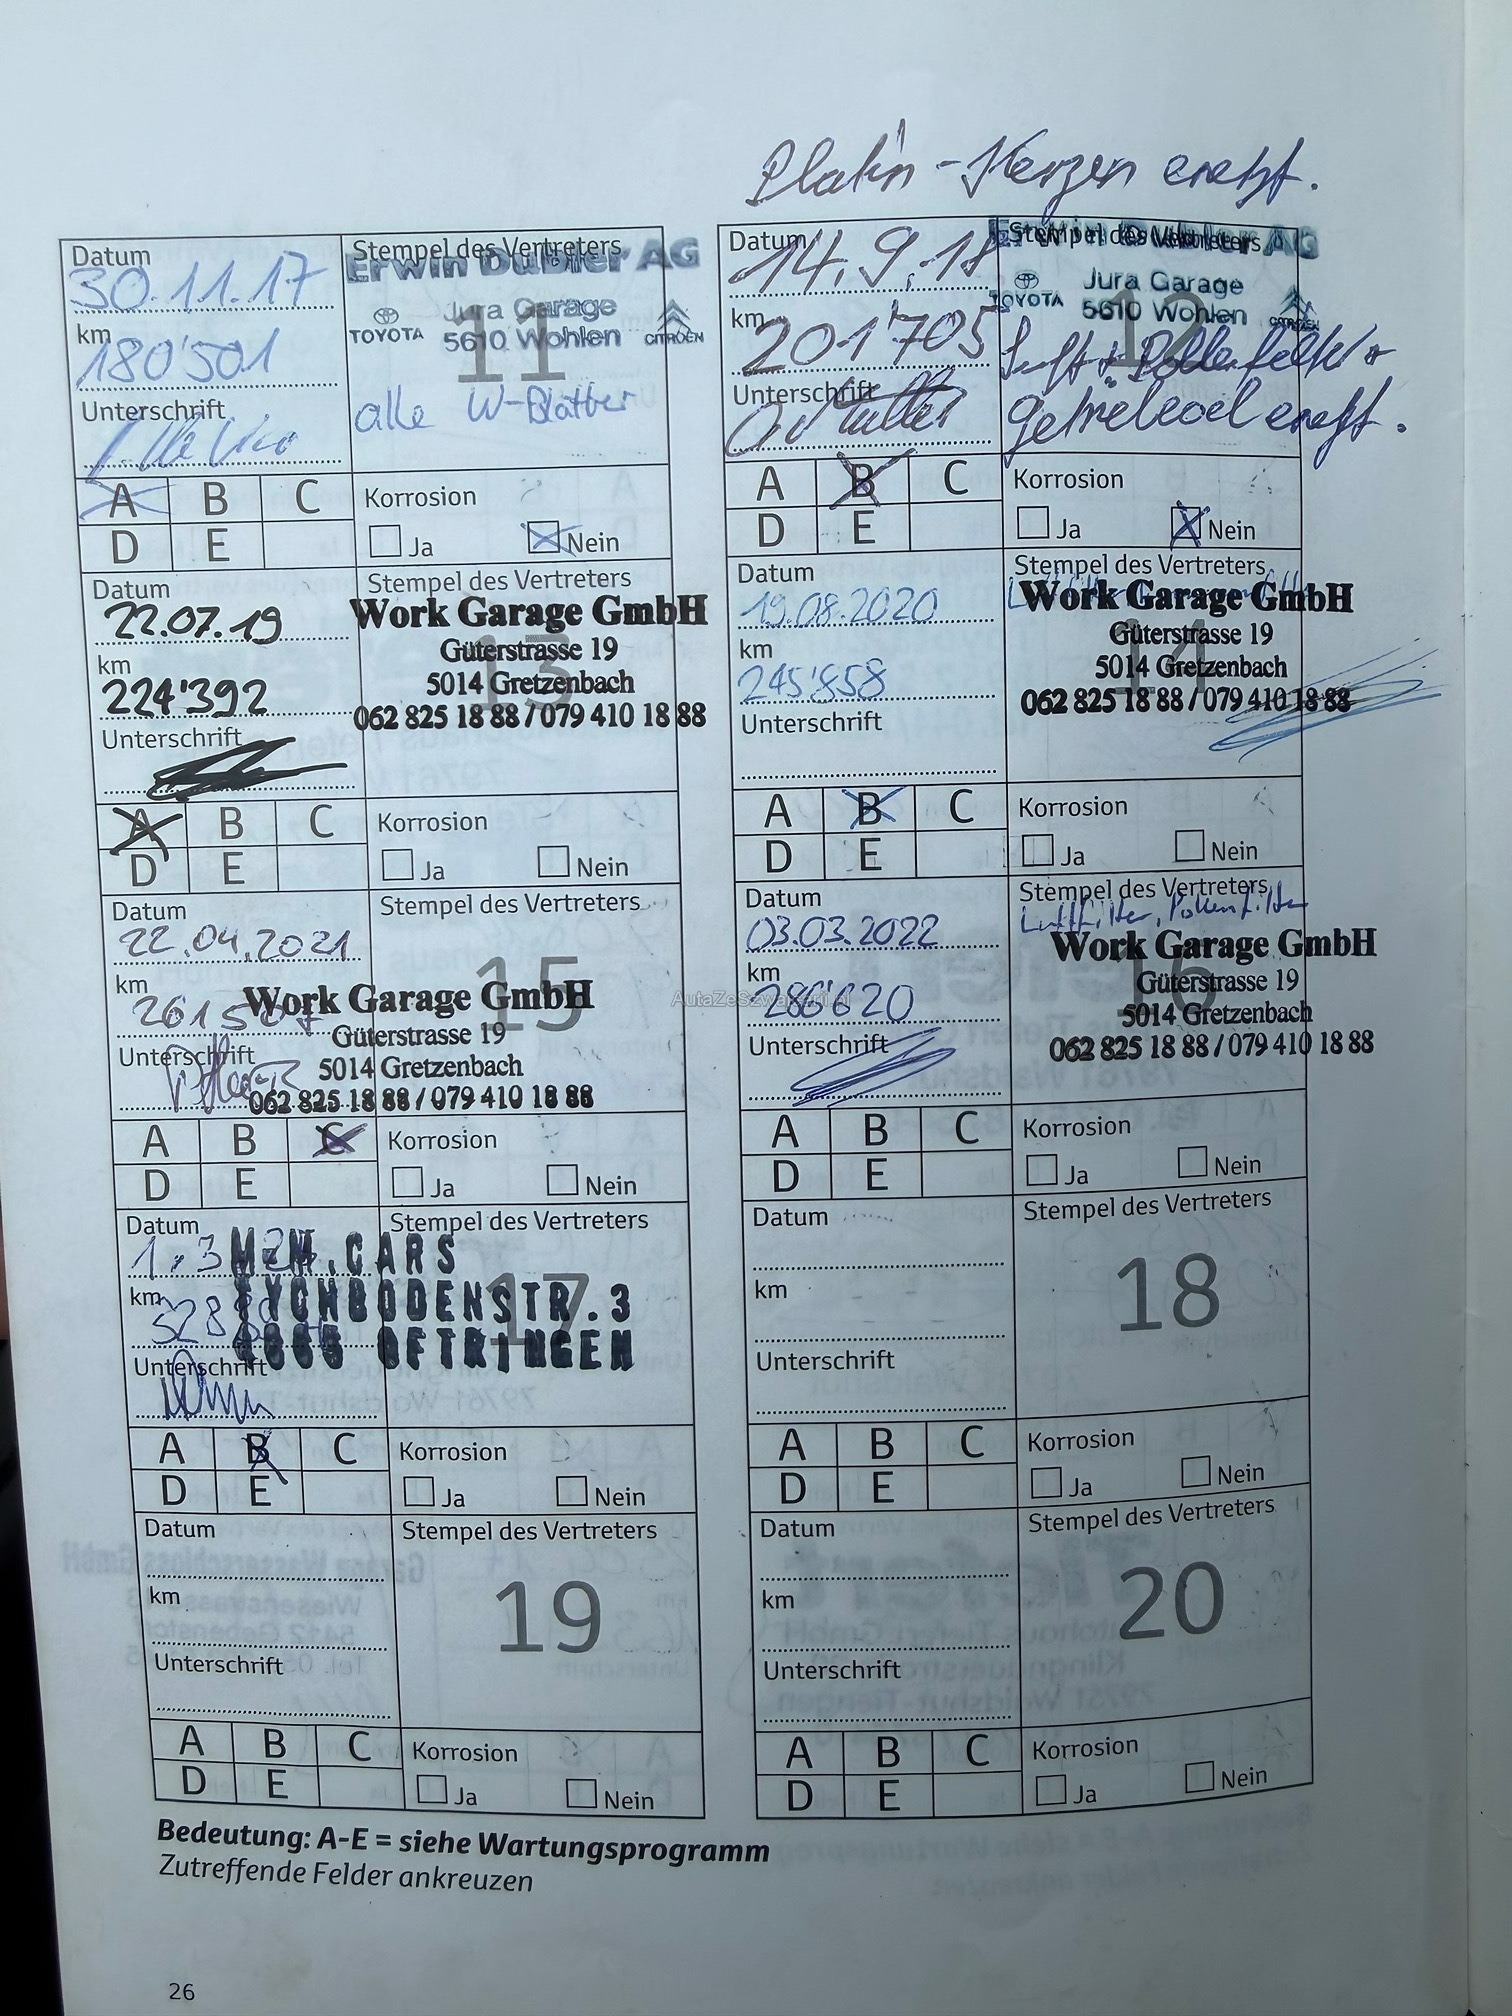 Platin-Kerzen
Datum
30.11.17
km
180'501
Unterschrift
Stempel des Vertreters
Erwin Dubler AG
TOYOTA
Jura Garage
5610 Wohlen
CITROËN
11
alle W-Blätter
A B C
D E
Korrosion
Ja Nein
Datum
14.9.18
km
201'705
Unterschrift
Stempel des Vertreters
Erwin Dubler AG
TOYOTA
Jura Garage
5610 Wohlen
CITROËN
12
Luft + Pollenfilter +
Getriebeoel
A B C
D E
Korrosion
Ja Nein
Datum
22.07.19
km
224'392
Unterschrift
Stempel des Vertreters
Work Garage GmbH
Güterstrasse 19
13
5014 Gretzenbach
062 825 18 88 / 079 410 18 88
A B C
D E
Korrosion
Ja Nein
Datum
19.08.2020
km
245'858
Unterschrift
Stempel des Vertreters
Work Garage GmbH
Güterstrasse 19
14
5014 Gretzenbach
062 825 18 88 / 079 410 18 88
A B C
D E
Korrosion
Ja Nein
Datum
22.04.2021
km
Unterschrift
Stempel des Vertreters
15
Work Garage GmbH
Güterstrasse 19
5014 Gretzenbach
062 825 18 88 / 079 410 18 88
A B C
D E
Korrosion
Ja Nein
Datum
03.03.2022
km
286'620
Unterschrift
Stempel des Vertreters
Luftfilter, Pollenfilter
Work Garage GmbH
16
Güterstrasse 19
5014 Gretzenbach
062 825 18 88 / 079 410 18 88
AutaZeSzwajcarii.pl
A B C
D E
Korrosion
Ja Nein
Datum
km
Unterschrift
Stempel des Vertreters
M+M.CARS
17
OFTRINGEN
A B C
D E
Korrosion
Ja Nein
Datum
km
Unterschrift
Stempel des Vertreters
18
A B C
D E
Korrosion
Ja Nein
Datum
km
Unterschrift
Stempel des Vertreters
19
A B C
D E
Korrosion
Ja Nein
Datum
km
Unterschrift
Stempel des Vertreters
20
A B C
D E
Korrosion
Ja Nein
Bedeutung: A-E = siehe Wartungsprogramm
Zutreffende Felder ankreuzen
26